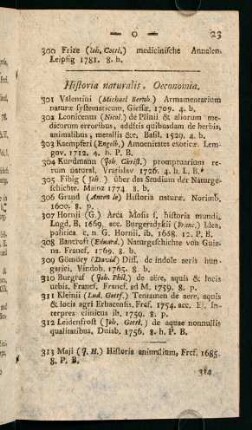 — o — 23
300 Frize (Joh. Corri.) medicinische Annalen.
Leipfig 1781. 8. b.
Hiftoria naturalis, Oeconomia.
301 Valentini (Michael Bernh.) Armamentarium
naturæ fyftematicum, Gieffæ, 1709. 4. b.
302 Leonicenus (Nicol.) de Plinii & aliorum me-
dicorum erroribus, additis quibusdam de herbis,
animalibus, metallis &c. Bafil. 1529. 4. b.
303 Kaempferi (Engelb.) Amoenitates exoticæ Lem-
gov. 1712. 4. b. P. B.
304 Kurdmann (Joh. Chrift.) promptuarium re-
rum natural. Vratislav 1726. 4. h. L. B.
305 Fibig (Joh.) über das Studium der Naturge-
fchichte. Mainz 1774 8. b.
306 Grund Hiftoria naturæ, Norimb.
1600. 8. p.
307 Hornii (G.) Arca Mofis f. hiftoria mundi,
Lugd. B. 1669. acc. Burgersdykii (Franc.) Idea,
politica c. n. G. Hornii, ib. 1668. 12. P. B.
308 Bancroft (Eduard.) Naturgefchichte von Guia-
na. Francf. 1769. 8. b.
309 Gömöry (David) Diff. de indole aeris hun-
garici, Vindob. 1765. 8. b.
310 Burgraf (Joh. Phil.) de aëre, aquis & locis
urbis, Francf. Francf. ad M. 1759. 8. p.
311 Kleinii (Lud. Gotf.) Tentamen de aere, aquis
& locis agri Erbacenfis, Frcf. 1754. acc. Ej. In-
terpres clinicus ib. 1759. 8. p.
312 Leidenfroft (Joh. Gottl.) de aquae nonnullis
qualitatibus, Duisb. 1756. 8. h. P. B.
313 Maji (J. H.) Hiftoria animalium, Frcf. 1685.
8. P. B.
314